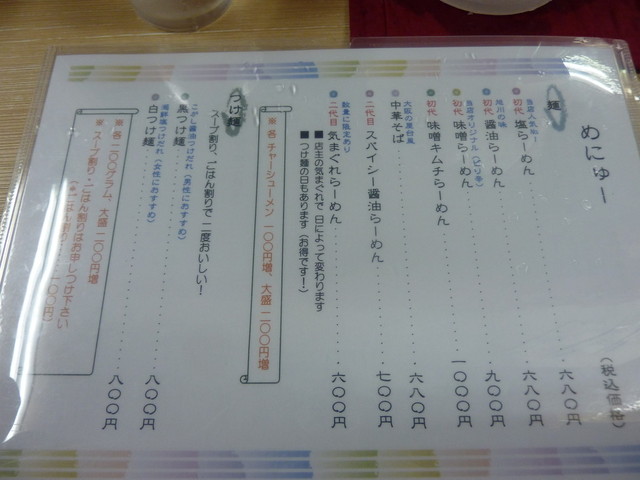 めにゅー
（税込価格）
麺
当店人気
初代 塩らーめん 六八〇円
旭川の味
初代 醤油らーめん 六八〇円
当店オリジナル（ピリ辛）
初代 味噌らーめん 九〇〇円
初代 味噌キムチらーめん 一〇〇〇円
大阪の屋台風
中華そば 六八〇円
二代目 スパイシー醤油らーめん 七〇〇円
数量に限定あり
二代目 気まぐれらーめん 六〇〇円
■店主の気まぐれで日によって変わります
■つけ麺の日もあります（お得です！）
※ 各 チャーシューメン 一〇〇円増、大盛 二〇〇円増
つけ麺
スープ割り、ごはん割りで 二度おいしい！
こがし醤油つけだれ（男性におすすめ）
黒つけ麺 八〇〇円
海鮮塩つけだれ（女性におすすめ）
白つけ麺 八〇〇円
※ 各 二〇〇グラム、大盛 二〇〇円増
※ スープ割り・ごはん割りはお申しつけ下さい
（※ごはん割り 一〇〇円）